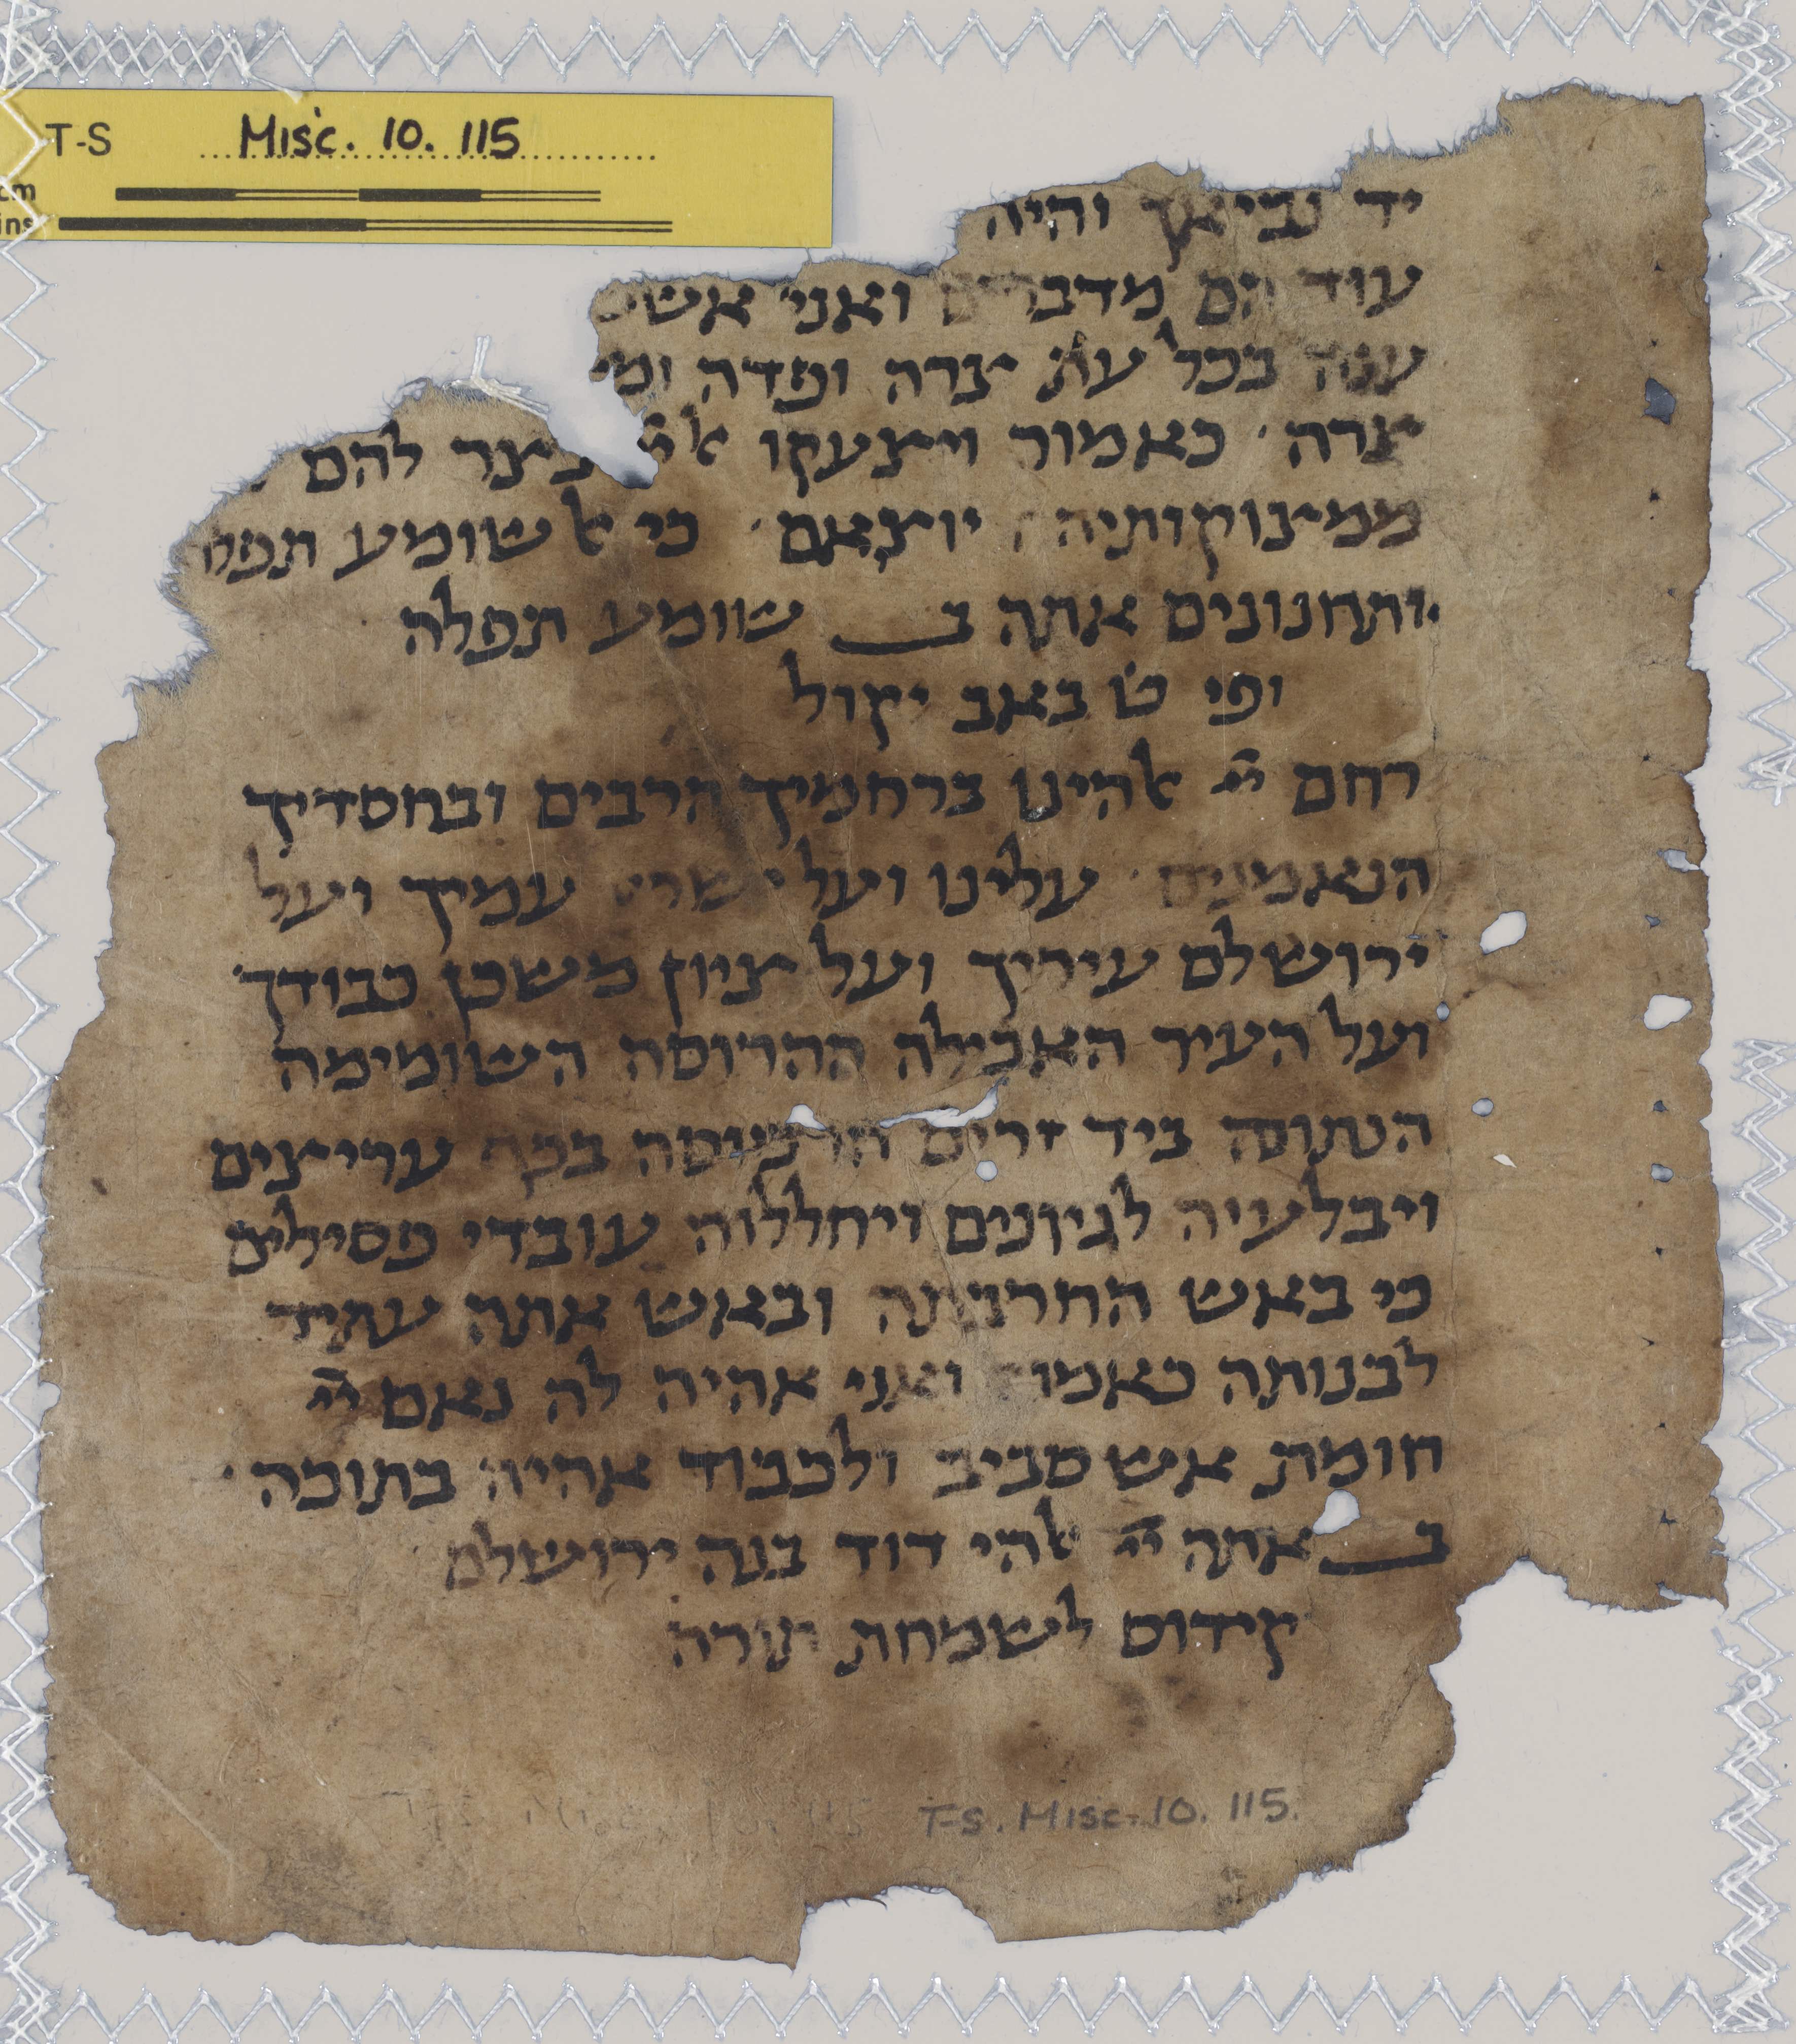 T-S Misc. 10. 115
cm
ins
יד נביאך והיה
עוד הם מדברים ואני אשמ
עונה בכל עת צרה ופדה ומ
צרה כאמור ויצעקו אל ייי בצר להם
ממצוקותיהם יוציאם כי אל שומע תפלה
ותחנונים אתה ב שומע תפלה
ופי ט באב יקול
רחם ייי אלהינו ברחמיך הרבים ובחסדיך
הנאמנים עלינו ועל ישראל עמיך ועל
ירושלם עיריך ועל ציון משכן כבודך
ועל העיר האבילה ההרוסה השומימה
הנתונה ביד זרים הרמוסה בכף עריצים
ויבלעוה לגיונים ויחללוה עובדי פסילים
כי באש החרבתה ובאש אתה עתיד
לבנותה כאמור ואני אהיה לה נאם ייי
חומת אש סביב ולכבוד אהיה בתוכה
ב אתה ייי אלהי דוד בנה ירושלם
קידוס לשמחת תורה
T-S. Misc. 10. 115.